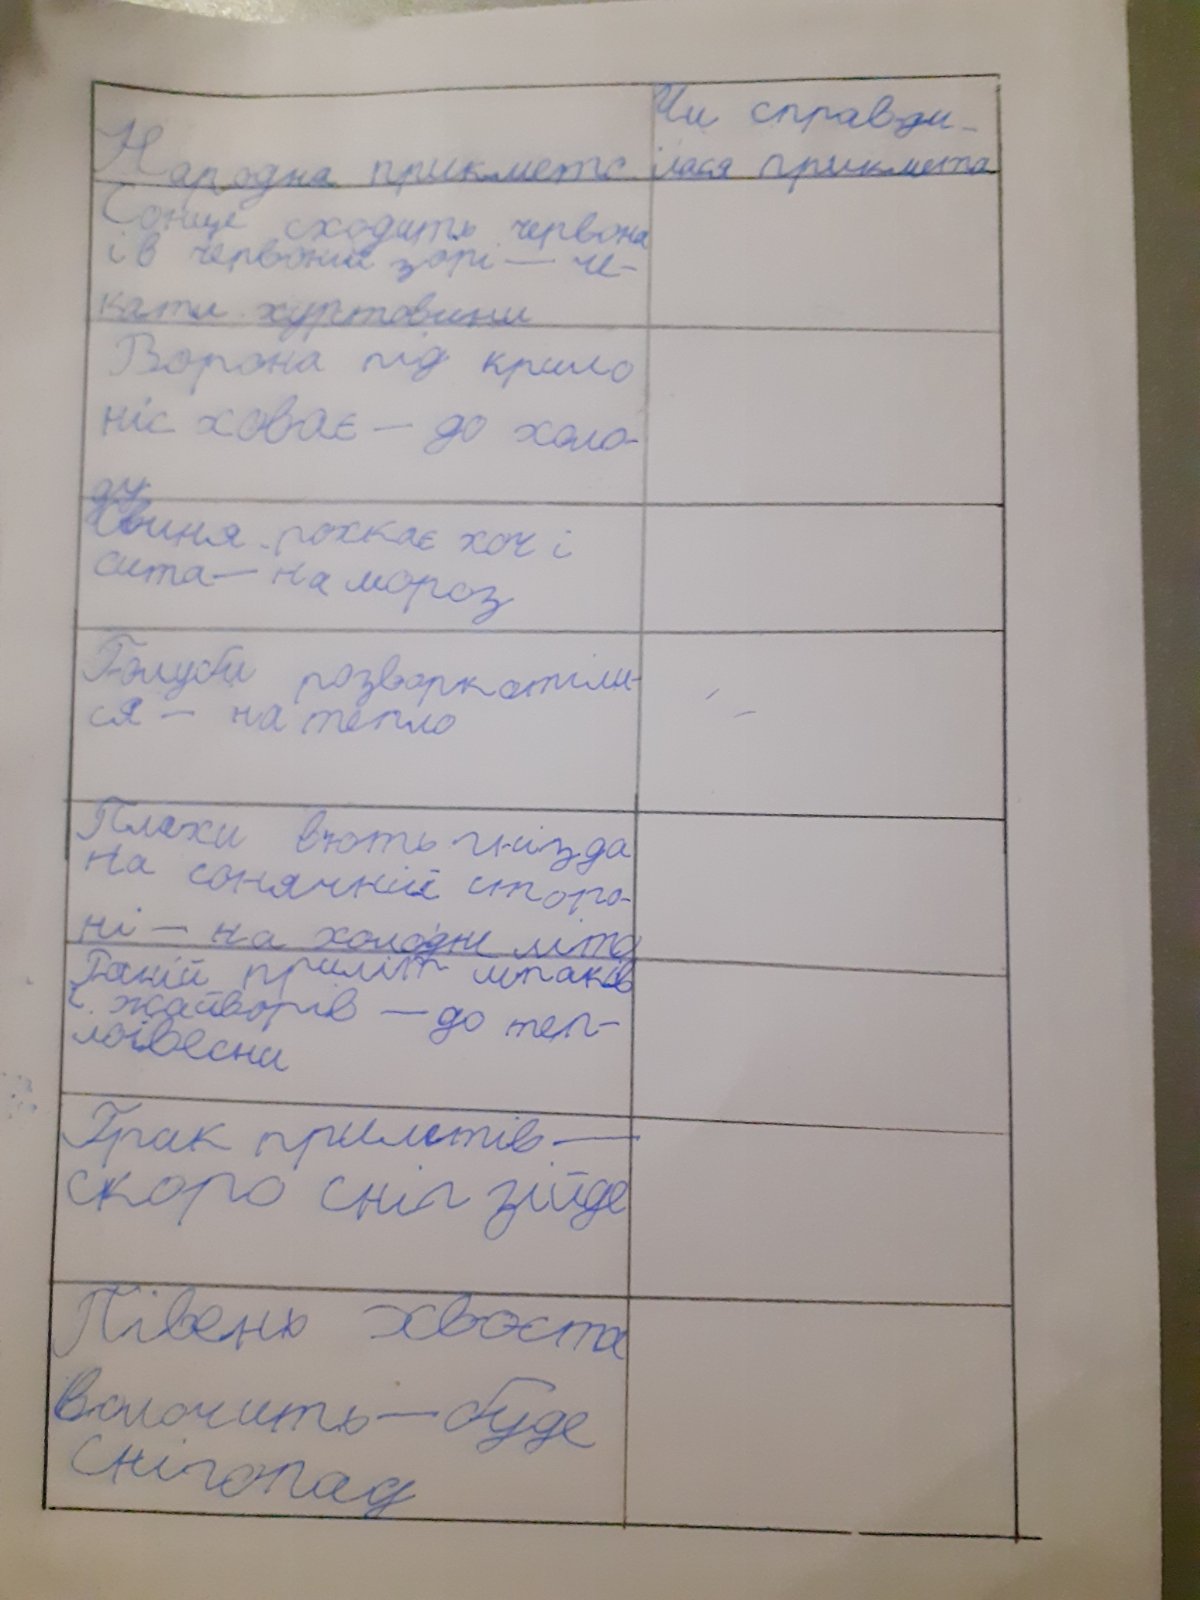 Чи справди-
Народна прикмета лася прикмета
Сонце сходить червона
і в червоній зорі — че-
кати хуртовини
Ворона під крило
ніс ховає — до холо-
ду
Свиня рохкає хоч і
сита — на мороз
Голуби розворкотіли-
ся — на тепло
Птахи в'ють гнізда
на сонячній сторо-
ні — на холодне літо
Ранній приліт шпаків
і жайворів — до теп-
лоївесни
Грак прилетів —
скоро сніг зійде
Півень хвоста
волочить — буде
снігопад